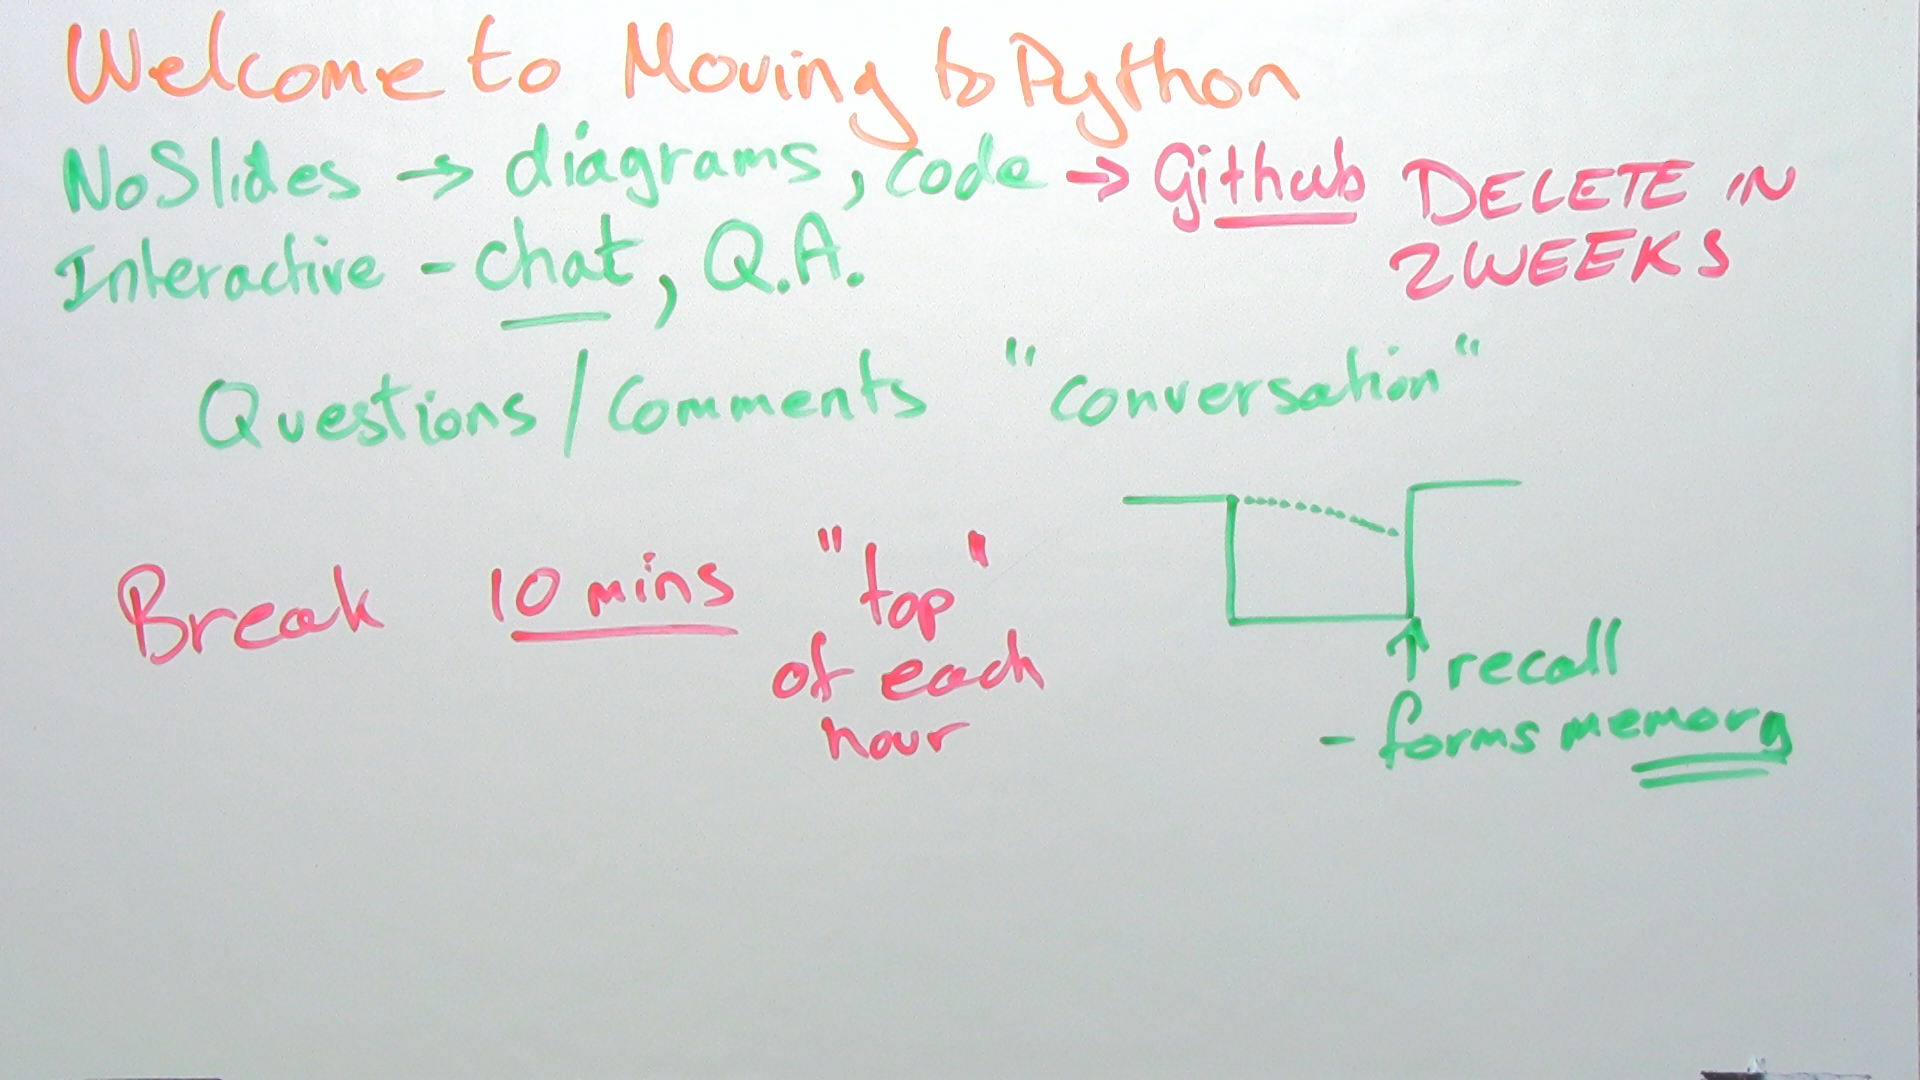 Welcome to Moving to Python
No Slides → diagrams, code → Github DELETE IN
2 WEEKS
Interactive - chat, Q.A.
Questions / Comments "conversation"
Break 10 mins "top"
of each
hour
↑ recall
- forms memory